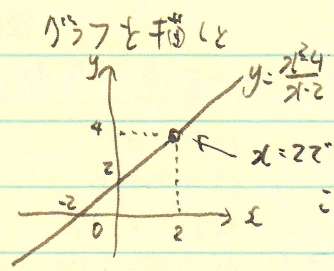 グラフを描くと
y
y=\frac{x^2-4}{x-2}
4
x=2で
2
-2
0
2
x